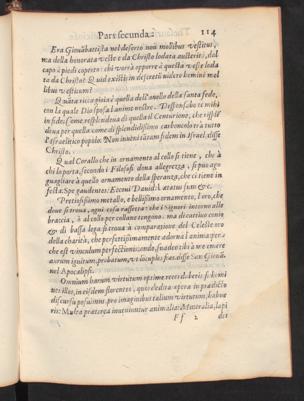 Pars secunda. 114
Era Giouābattista nel deserto non mollibus vestitus,
ma della honorata veste è da Christo lodata austerità, dal
capo à piedi coperto: chi vorrà opporre à questa veste loda
ta da Christo? Quid existis in desertū videre hominē mol
libus vestitum?
Quāta ricca pietra è quella dell'anello della santa fede,
con la quale Dio sposa l'animo nostre.
in fide: come resplendeua di questa il Centurione, che
dēua per quella come di splendidissimo carboncolo trà tutto
Israelitico popolo. Non inueni tātam fidem in Israel disse
Christo.
Qual Corallo che in ornamento al collo si tiene, che à
chi lo porta, secondo i Filosofi dona allegrezza, si può ag
guagliare à quello ornamento della speranza, che ci tiene in
festa: Spe gaudentes: Eccoui Dauid: Lætatus sum &c.
Pretiosissimo metallo, e bellissimo ornamento, l'oro, che
doue si troua, ogni cosa rassetta: che i Signori intorno alle
braccia, ò al collo per collane tengono: ma di cattiuo conio
& di bassa lega si troua à comparatione del Celeste oro
della charità, che perfettissimamente adorna l'anima: pera
che est vinculum perfectionis: onde, suadeo tibi à me emere
aurum ignitum, probatum, vt locuples fias, disse San Gioua.
nel Apocalipsi.
Omnium harum virtutum optime recordaberis si homi
nes illos, in eisdem florentes, quos edita opera in prædicto
discursu posuimus, pro imaginibus talium virtutum, habue
ris: Multa præterea inueniuntur animalia: Mineralia, lapi
Ff 2 dei